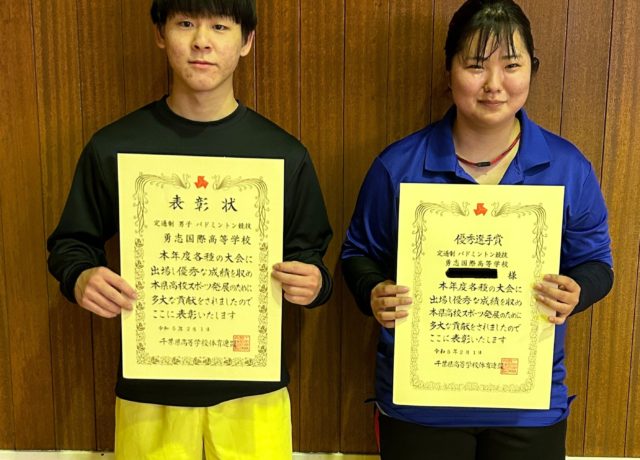 表彰状
定通制 男子 バドミントン競技
勇志国際高等学校
本年度各種の大会に
出場し優秀な成績を収め
本県高校スポーツ発展のために
多大な貢献をされましたので
ここに表彰いたします
令和5年2月1日
千葉県高等学校体育連盟
優秀選手賞
定通制 バドミントン競技
勇志国際高等学校
様
本年度各種の大会に
出場し優秀な成績を収め
本県高校スポーツ発展のために
多大な貢献をされましたので
ここに表彰いたします
令和5年2月1日
千葉県高等学校体育連盟